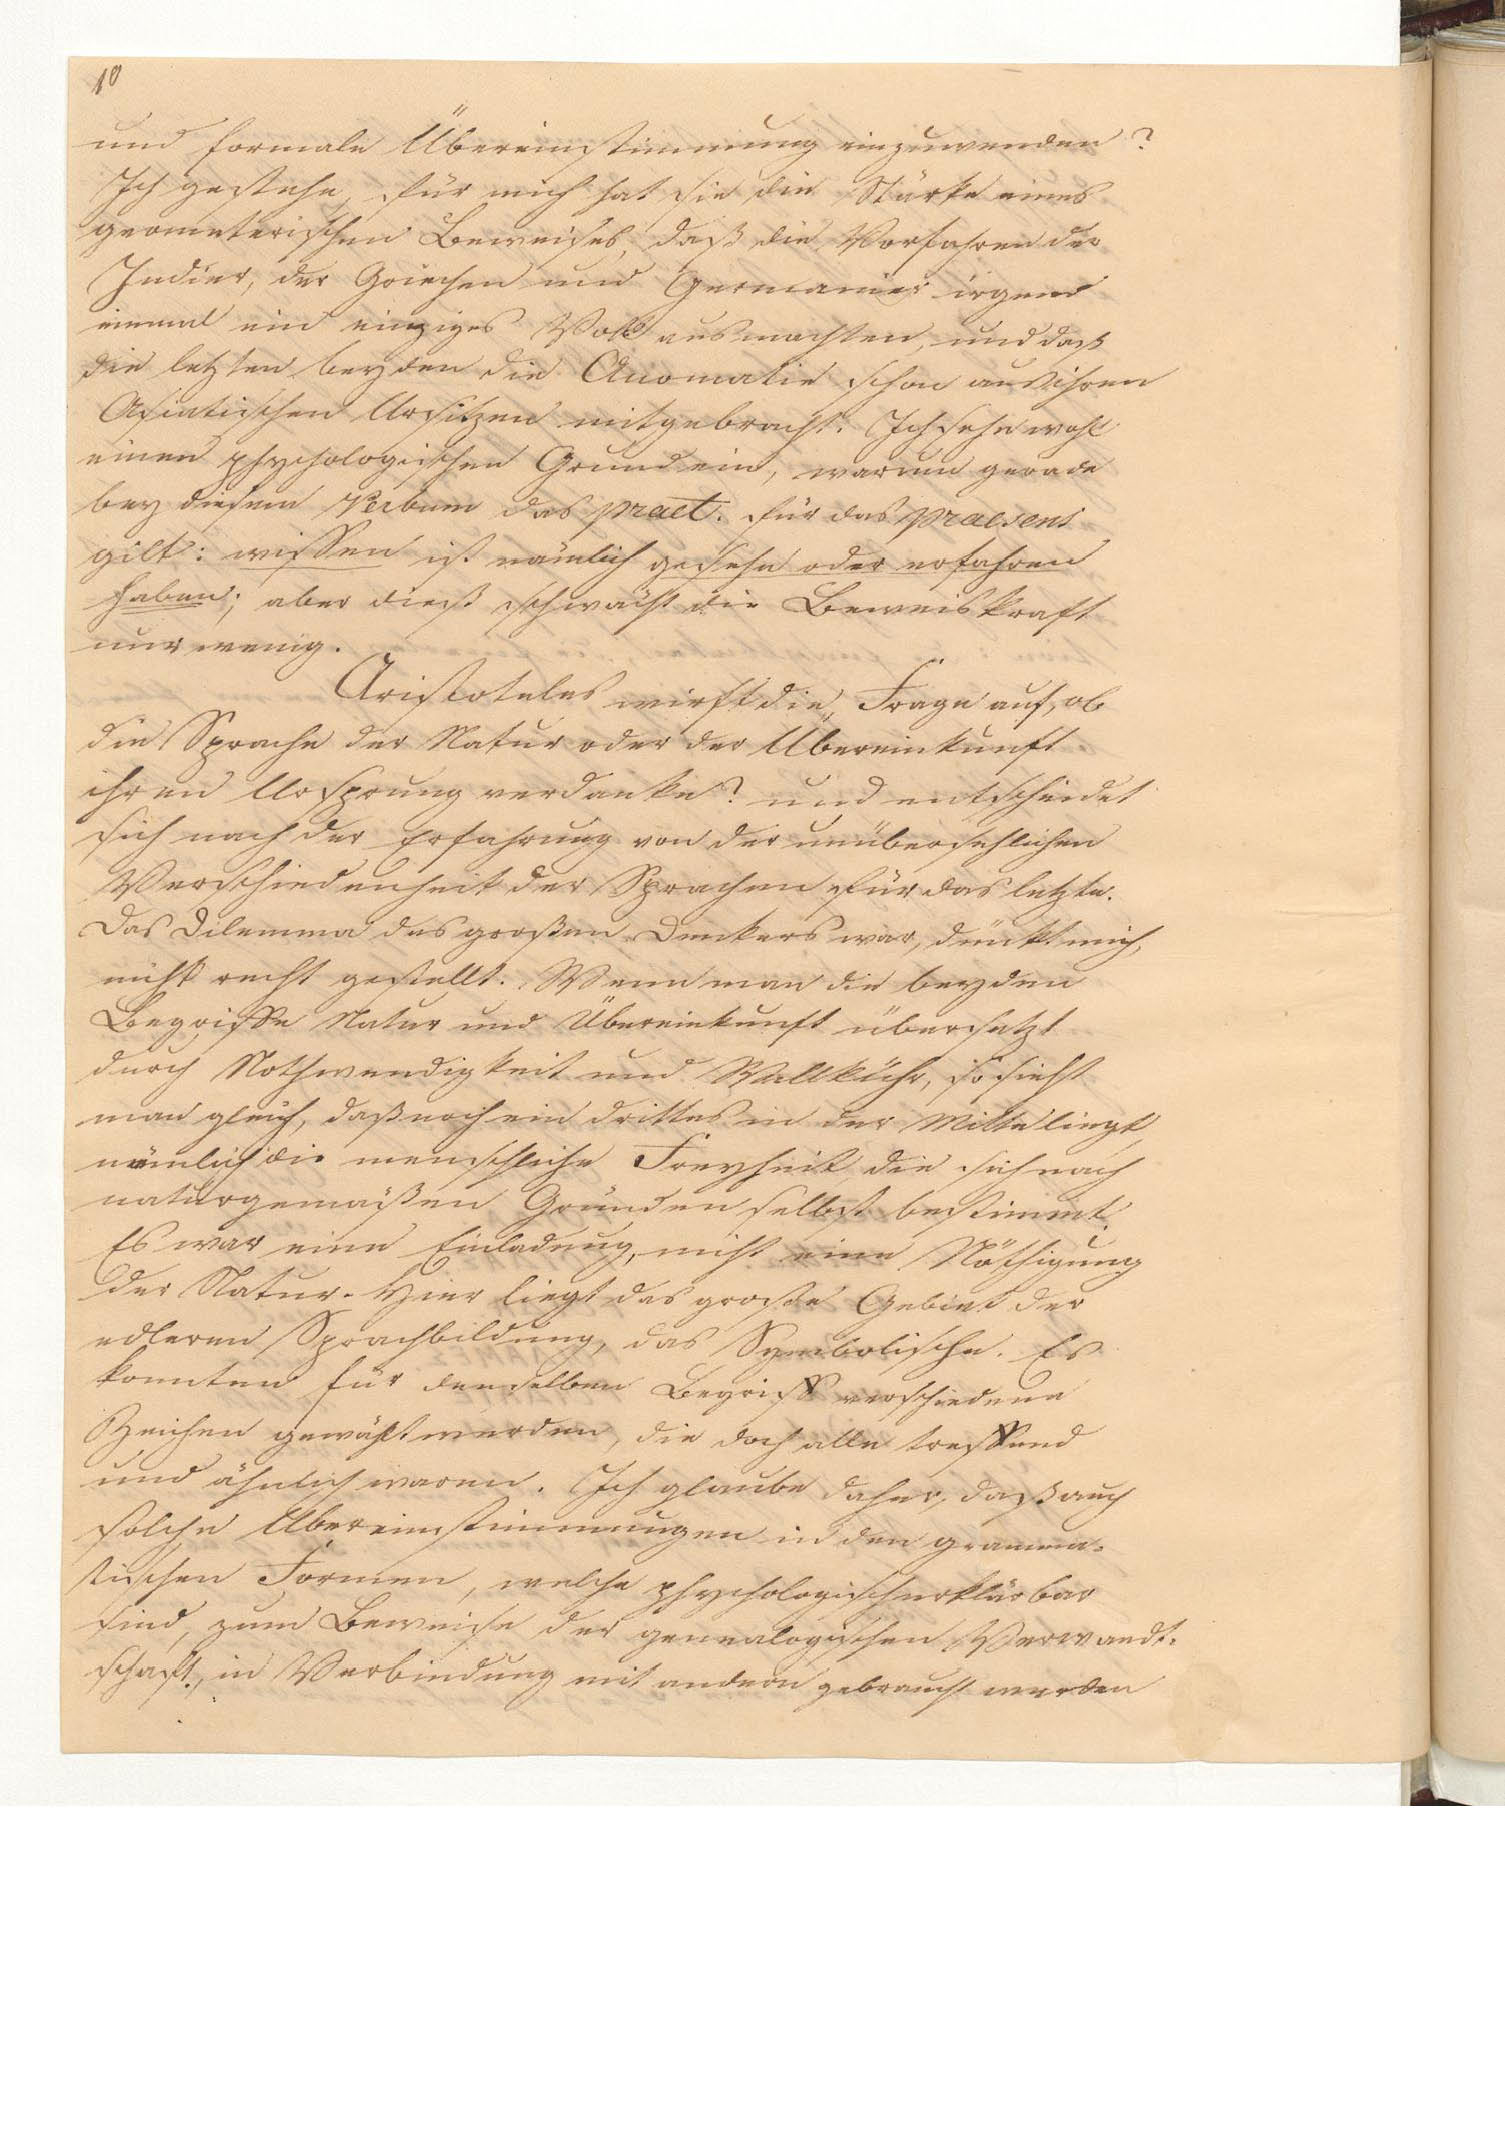 10
und formale Übereinstimmung einzuwenden?
Ich gestehe, für mich hat sie die Stärke eines
geometerischen Beweises, daß die Vorfahren der
Indier, der Griechen und Germanier irgend
einmal ein einziges Volk ausmachten, und daß
die letzten beyden die Anomalie schon aus ihren
Asiatischen Ursitzen mitgebracht. Ich sehe wohl
einen psychologischen Grund ein, warum gerade
bey diesem Verbum das praet. für das praesens
gilt: wissen ist nämlich gesehn oder erfahren
haben; aber dieß schwächt die Beweiskraft
nur wenig.
Aristoteles wirft die Frage auf, ob
die Sprache der Natur oder der Übereinkunft
ihren Ursprung verdanke? und entscheidet
sich nach der Erfahrung von der unübersehlichen
Verschiedenheit der Sprachen für das letzte.
Das Dilemma des großen Denkers war, dünkt mich,
nicht recht gestellt. Wenn man die beyden
Begriffe Natur und Übereinkunft übersetzt
durch Nothwendigkeit und Willkühr, so sieht
man gleich, daß noch ein drittes in der Mitte liegt,
nämlich die menschliche Freyheit, die sich nach
naturgemäßen Gründen selbst bestimmt.
Es war eine Einladung, nicht eine Nöthigung
der Natur. Hier liegt das große Gebiet der
edleren Sprachbildung, das Symbolische. Es
konnten für denselben Begriff verschiedene
Zeichen gewählt werden, die doch alle treffend
und ähnlich waren. Ich glaube daher, daß auch
solche Übereinstimmungen in den gramma-
tischen Formen, welche psychologisch erklärbar
sind, zum Beweise der genealogischen Verwandt-
schaft, in Verbindung mit andern gebraucht werden